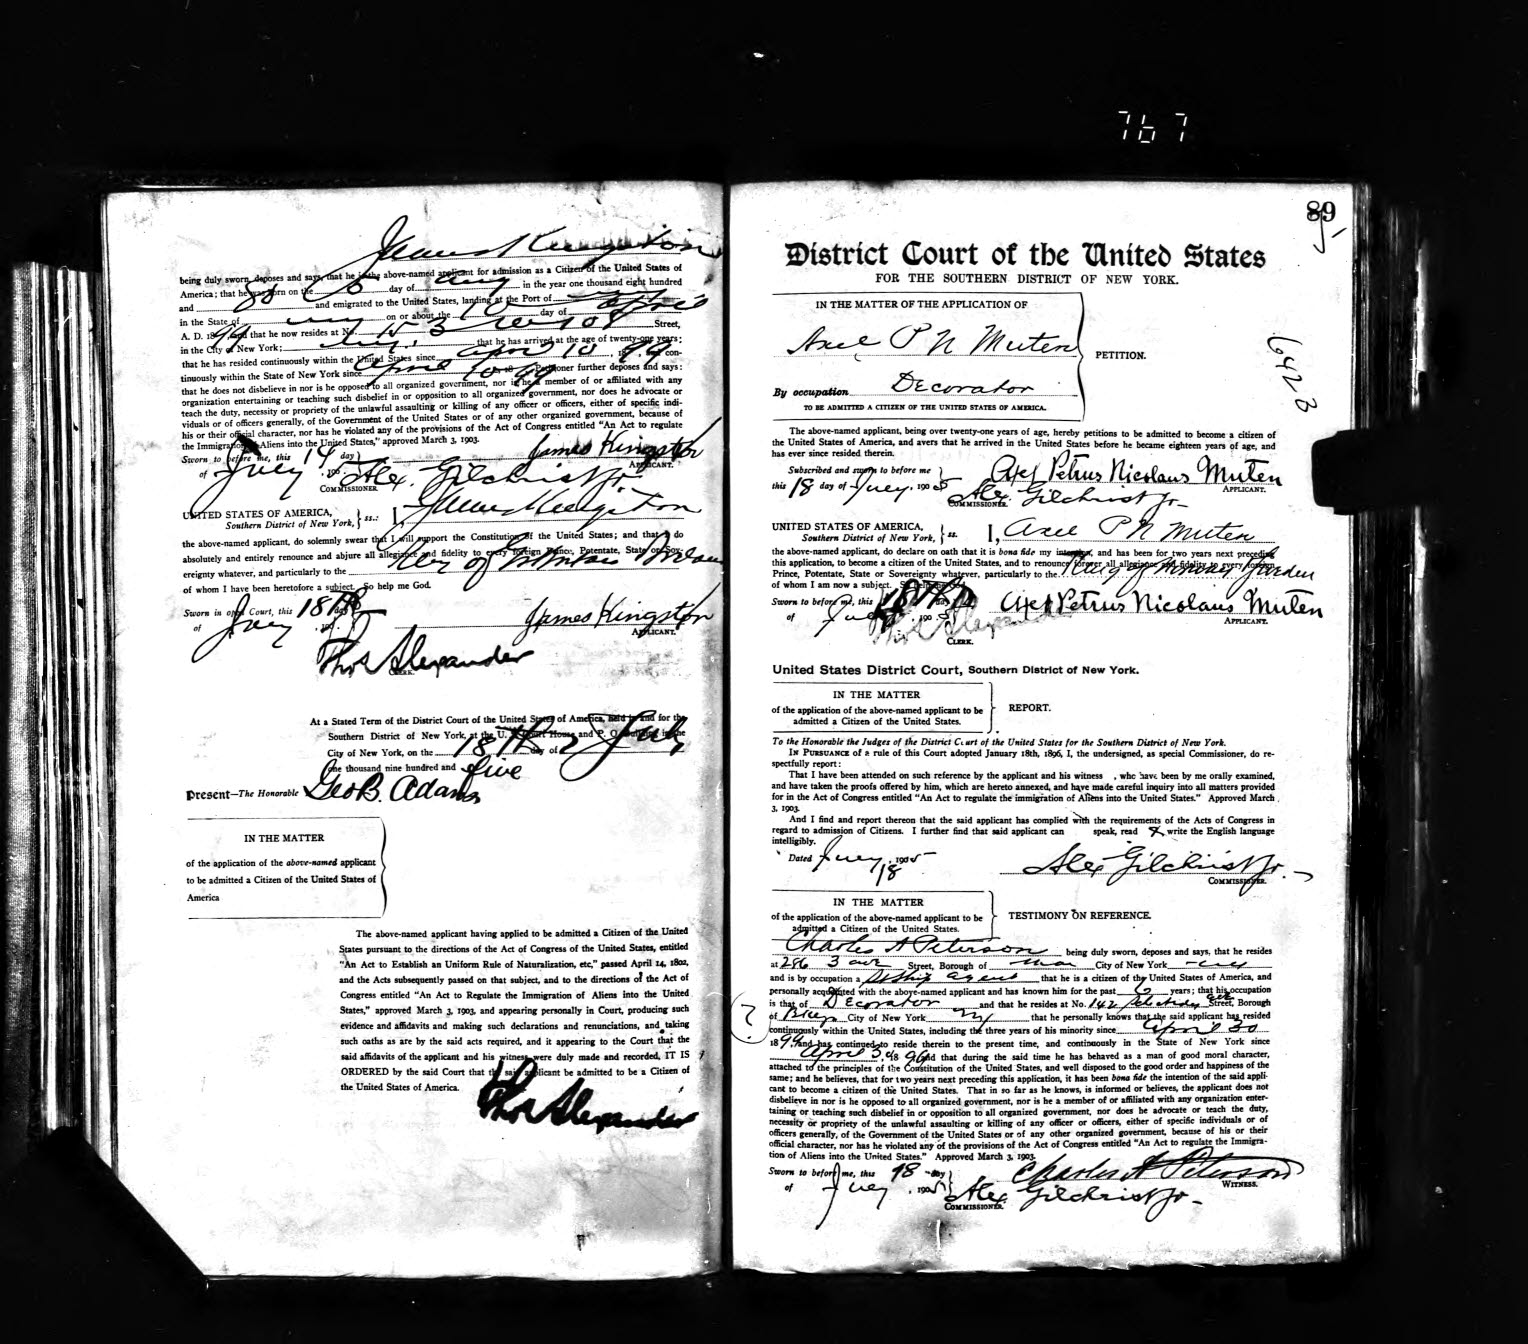 767
James Kingston
being duly sworn, deposes and says, that he is the above-named applicant for admission as a Citizen of the United States of
America; that he was born on the 6 day of Aug in the year one thousand eight hundred
and and emigrated to the United States, landing at the Port of
in the State of on or about the 10 day of April
A. D. 18 and that he now resides at No. 153 Street,
in the City of New York; that he has arrived at the age of twenty-one years;
that he has resided continuously within the United States since April 10, 1899 con-
tinuously within the State of New York since April 10 99 Petitioner further deposes and says:
that he does not disbelieve in nor is he opposed to all organized government, nor is he a member of or affiliated with any
organization entertaining or teaching such disbelief in or opposition to all organized government, nor does he advocate or
teach the duty, necessity or propriety of the unlawful assaulting or killing of any officer or officers, either of specific indi-
viduals or of officers generally, of the Government of the United States or of any other organized government, because of
his or their official character, nor has he violated any of the provisions of the Act of Congress entitled "An Act to regulate
the Immigration of Aliens into the United States," approved March 3, 1903.
Sworn to before me, this 14 day James Kingston
of July , 190 Alex. Gilchrist Jr. APPLICANT.
COMMISSIONER.
UNITED STATES OF AMERICA,
Southern District of New York, ss.: I, James Kingston
the above-named applicant, do solemnly swear that I will support the Constitution of the United States; and that I do
absolutely and entirely renounce and abjure all allegiance and fidelity to every foreign Prince, Potentate, State or Sov-
ereignty whatever, and particularly to the King of
of whom I have been heretofore a subject. So help me God.
Sworn in open Court, this 18th day
of July , 190 James Kingston
APPLICANT.
Thos Alexander
CLERK.
At a Stated Term of the District Court of the United States of America, held in and for the
Southern District of New York, at the U. S. Court House and P. O. Building in the
City of New York, on the 18th day of July
one thousand nine hundred and five
Present—The Honorable Geo B. Adams
IN THE MATTER
of the application of the above-named applicant
to be admitted a Citizen of the United States of
America
The above-named applicant having applied to be admitted a Citizen of the United
States pursuant to the directions of the Act of Congress of the United States, entitled
"An Act to Establish an Uniform Rule of Naturalization, etc," passed April 14, 1802,
and the Acts subsequently passed on that subject, and to the directions of the Act of
Congress entitled "An Act to Regulate the Immigration of Aliens into the United
States," approved March 3, 1903, and appearing personally in Court, producing such
evidence and affidavits and making such declarations and renunciations, and taking
such oaths as are by the said acts required, and it appearing to the Court that the
said affidavits of the applicant and his witness were duly made and recorded, IT IS
ORDERED by the said Court that the said applicant be admitted to be a Citizen of
the United States of America.
Thos Alexander
89
District Court of the United States
FOR THE SOUTHERN DISTRICT OF NEW YORK.
IN THE MATTER OF THE APPLICATION OF
Axel P N Muten
PETITION.
By occupation Decorator
TO BE ADMITTED A CITIZEN OF THE UNITED STATES OF AMERICA.
6423
The above-named applicant, being over twenty-one years of age, hereby petitions to be admitted to become a citizen of
the United States of America, and avers that he arrived in the United States before he became eighteen years of age, and
has ever since resided therein.
Subscribed and sworn to before me Axel Petrus Nicolaus Muten
this 18 day of July, 1905 APPLICANT.
Alex. Gilchrist Jr.
COMMISSIONER.
UNITED STATES OF AMERICA,
Southern District of New York, ss. I, Axel P N Muten
the above-named applicant, do declare on oath that it is bona fide my intention, and has been for two years next preceding
this application, to become a citizen of the United States, and to renounce forever all allegiance and fidelity to every foreign
Prince, Potentate, State or Sovereignty whatever, particularly to the King of Sweden
of whom I am now a subject.
Sworn to before me, this 18th Axel Petrus Nicolaus Muten
of July 1905 APPLICANT.
Thos Alexander
CLERK.
United States District Court, Southern District of New York.
IN THE MATTER
of the application of the above-named applicant to be
admitted a Citizen of the United States.
REPORT.
To the Honorable the Judges of the District Court of the United States for the Southern District of New York.
IN PURSUANCE of a rule of this Court adopted January 18th, 1896, I, the undersigned, as special Commissioner, do re-
spectfully report:
That I have been attended on such reference by the applicant and his witness , who have been by me orally examined,
and have taken the proofs offered by him, which are hereto annexed, and have made careful inquiry into all matters provided
for in the Act of Congress entitled "An Act to regulate the immigration of Aliens into the United States." Approved March
3, 1903.
And I find and report thereon that the said applicant has complied with the requirements of the Acts of Congress in
regard to admission of Citizens. I further find that said applicant can speak, read & write the English language
intelligibly.
Dated July 18, 1905 Alex Gilchrist Jr.
COMMISSIONER.
IN THE MATTER
of the application of the above-named applicant to be
admitted a Citizen of the United States.
TESTIMONY ON REFERENCE.
Charles A Peterson being duly sworn, deposes and says, that he resides
at 286 3 ave Street, Borough of Man City of New York
and is by occupation a agent that he is a citizen of the United States of America, and
personally acquainted with the above-named applicant and has known him for the past 6 years; that his occupation
is that of Decorator and that he resides at No. 142 ave Street, Borough
of Bklyn City of New York NY that he personally knows that the said applicant has resided
continuously within the United States, including the three years of his minority since April 30
1899, and has continued to reside therein to the present time, and continuously in the State of New York since
April 30, 1899 and that during the said time he has behaved as a man of good moral character,
attached to the principles of the Constitution of the United States, and well disposed to the good order and happiness of the
same; and he believes, that for two years next preceding this application, it has been bona fide the intention of the said appli-
cant to become a citizen of the United States. That in so far as he knows, is informed or believes, the applicant does not
disbelieve in nor is he opposed to all organized government, nor is he a member of or affiliated with any organization enter-
taining or teaching such disbelief in or opposition to all organized government, nor does he advocate or teach the duty,
necessity or propriety of the unlawful assaulting or killing of any officer or officers, either of specific individuals or of
officers generally, of the Government of the United States or of any other organized government, because of his or their
official character, nor has he violated any of the provisions of the Act of Congress entitled "An Act to regulate the Immigra-
tion of Aliens into the United States." Approved March 3, 1903.
Sworn to before me, this 18 day Charles A Peterson
of July , 1905 WITNESS.
Alex Gilchrist Jr.
COMMISSIONER.
?